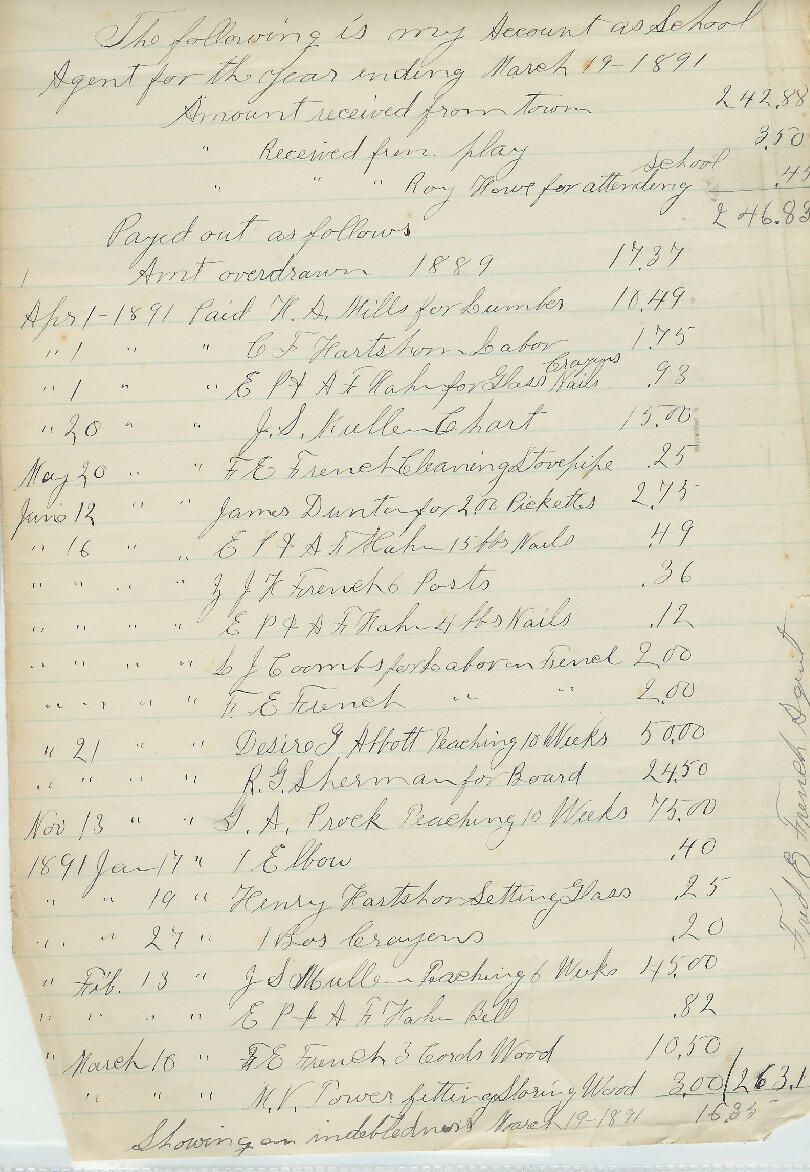 The following is my Account as School
Agent for the year ending March 19-1891
Amount received from town 242.88
" Received from play 3.50
" " " Roy Howe for attending school .45
246.83
Payed out as follows
1 Amt overdrawn 1889 17.37
Apr 1-1891 Paid H. A. Mills for Lumber 10.49
" 1 " " C F Hartshorn Labor 1.75
" 1 " " E P & A F Hahn for Glass Crayons Nails .93
" 20 " " J. S. Mullen Chart 15.00
May 20 " " F E French Cleaning Stovepipe .25
June 12 " " James Dunton for 200 Picketts 2.75
" 16 " " E P & A F Hahn 15 lbs Nails .49
" " " " J H French 6 Posts .36
" " " " E P & A F Hahn 4 lbs Nails .12
" " " " L J Coombs for Labor on Fence 2.00
" " " " F E French " " 2.00
" 21 " " Desire G Abbott Teaching 10 Weeks 50.00
" " " " R. G Sherman for Board 24.50
Nov 13 " " G. A. Prock Teaching 10 Weeks 75.00
1891 Jan 17 " 1 Elbow .40
" " 19 " Henry Hartshorn Setting Glass .25
" " 27 " 1 Box Crayons .20
" Feb. 13 " J S Mullen Teaching 6 Weeks 45.00
" " " " E P & A F Hahn Bill .82
" March 10 " F E French 3 Cords Wood 10.50
" " " M. V. Tower fitting Storing Wood 3.00 263.1
Showing an indebtedness March 19-1891 16.35
Fred E French Agent